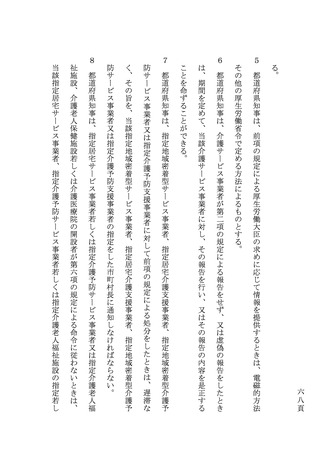 る。
５　都道府県知事は、前項の規定による厚生労働大臣の求めに応じて情報を提供するときは、電磁的方法
その他の厚生労働省令で定める方法によるものとする。
６　都道府県知事は、介護サービス事業者が第二項の規定による報告をせず、又は虚偽の報告をしたとき
は、期間を定めて、当該介護サービス事業者に対し、その報告を行い、又はその報告の内容を是正する
ことを命ずることができる。
７　都道府県知事は、指定地域密着型サービス事業者、指定居宅介護支援事業者、指定地域密着型介護予
防サービス事業者又は指定介護予防支援事業者に対して前項の規定による処分をしたときは、遅滞な
く、その旨を、当該指定地域密着型サービス事業者、指定居宅介護支援事業者、指定地域密着型介護予
防サービス事業者又は指定介護予防支援事業者の指定をした市町村長に通知しなければならない。
８　都道府県知事は、指定居宅サービス事業者若しくは指定介護予防サービス事業者又は指定介護老人福
祉施設、介護老人保健施設若しくは介護医療院の開設者が第六項の規定による命令に従わないときは、
当該指定居宅サービス事業者、指定介護予防サービス事業者若しくは指定介護老人福祉施設の指定若し
六八頁